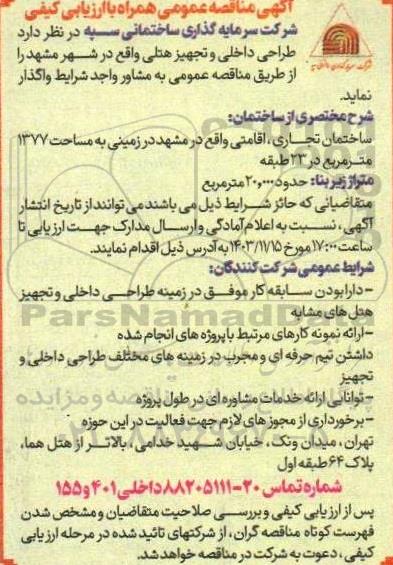 آگهی مناقصه عمومی همراه با ارزیابی کیفی
شرکت سرمایه گذاری ساختمانی سپه در نظر دارد
طراحی داخلی و تجهیز هتلی واقع در شهر مشهد را
از طریق مناقصه عمومی به مشاور واجد شرایط واگذار
نماید.
شرح مختصری از ساختمان:
ساختمان تجاری، اقامتی واقع در مشهد در زمینی به مساحت ۱۳۷۷
مترمربع در ۲۳ طبقه
متراژ زیر بنا: حدود ۲۰,۰۰۰ مترمربع
متقاضیانی که حائز شرایط ذیل می باشند می توانند از تاریخ انتشار
آگهی، نسبت به اعلام آمادگی و ارسال مدارک جهت ارزیابی تا
ساعت ۱۷:۰۰ مورخ ۱۴۰۳/۱۱/۱۵ به آدرس ذیل اقدام نمایند.
شرایط عمومی شرکت کنندگان:
- دارا بودن سابقه کار موفق در زمینه طراحی داخلی و تجهیز
هتل های مشابه
- ارائه نمونه کارهای مرتبط با پروژه های انجام شده
داشتن تیم حرفه ای و مجرب در زمینه های مختلف طراحی داخلی و
تجهیز
- توانایی ارائه خدمات مشاوره ای در طول پروژه
- برخورداری از مجوز های لازم جهت فعالیت در این حوزه
تهران، میدان ونک، خیابان شهید خدامی، بالاتر از هتل هما،
پلاک ۶۴ طبقه اول
شماره تماس ۲۰-۸۸۲۰۵۱۱۱ داخلی ۴۰۱ و ۱۵۵
پس از ارزیابی کیفی و بررسی صلاحیت متقاضیان و مشخص شدن
فهرست کوتاه مناقصه گران، از شرکتهای تائید شده در مرحله ارزیابی
کیفی، دعوت به شرکت در مناقصه خواهد شد.
ParsNamadData